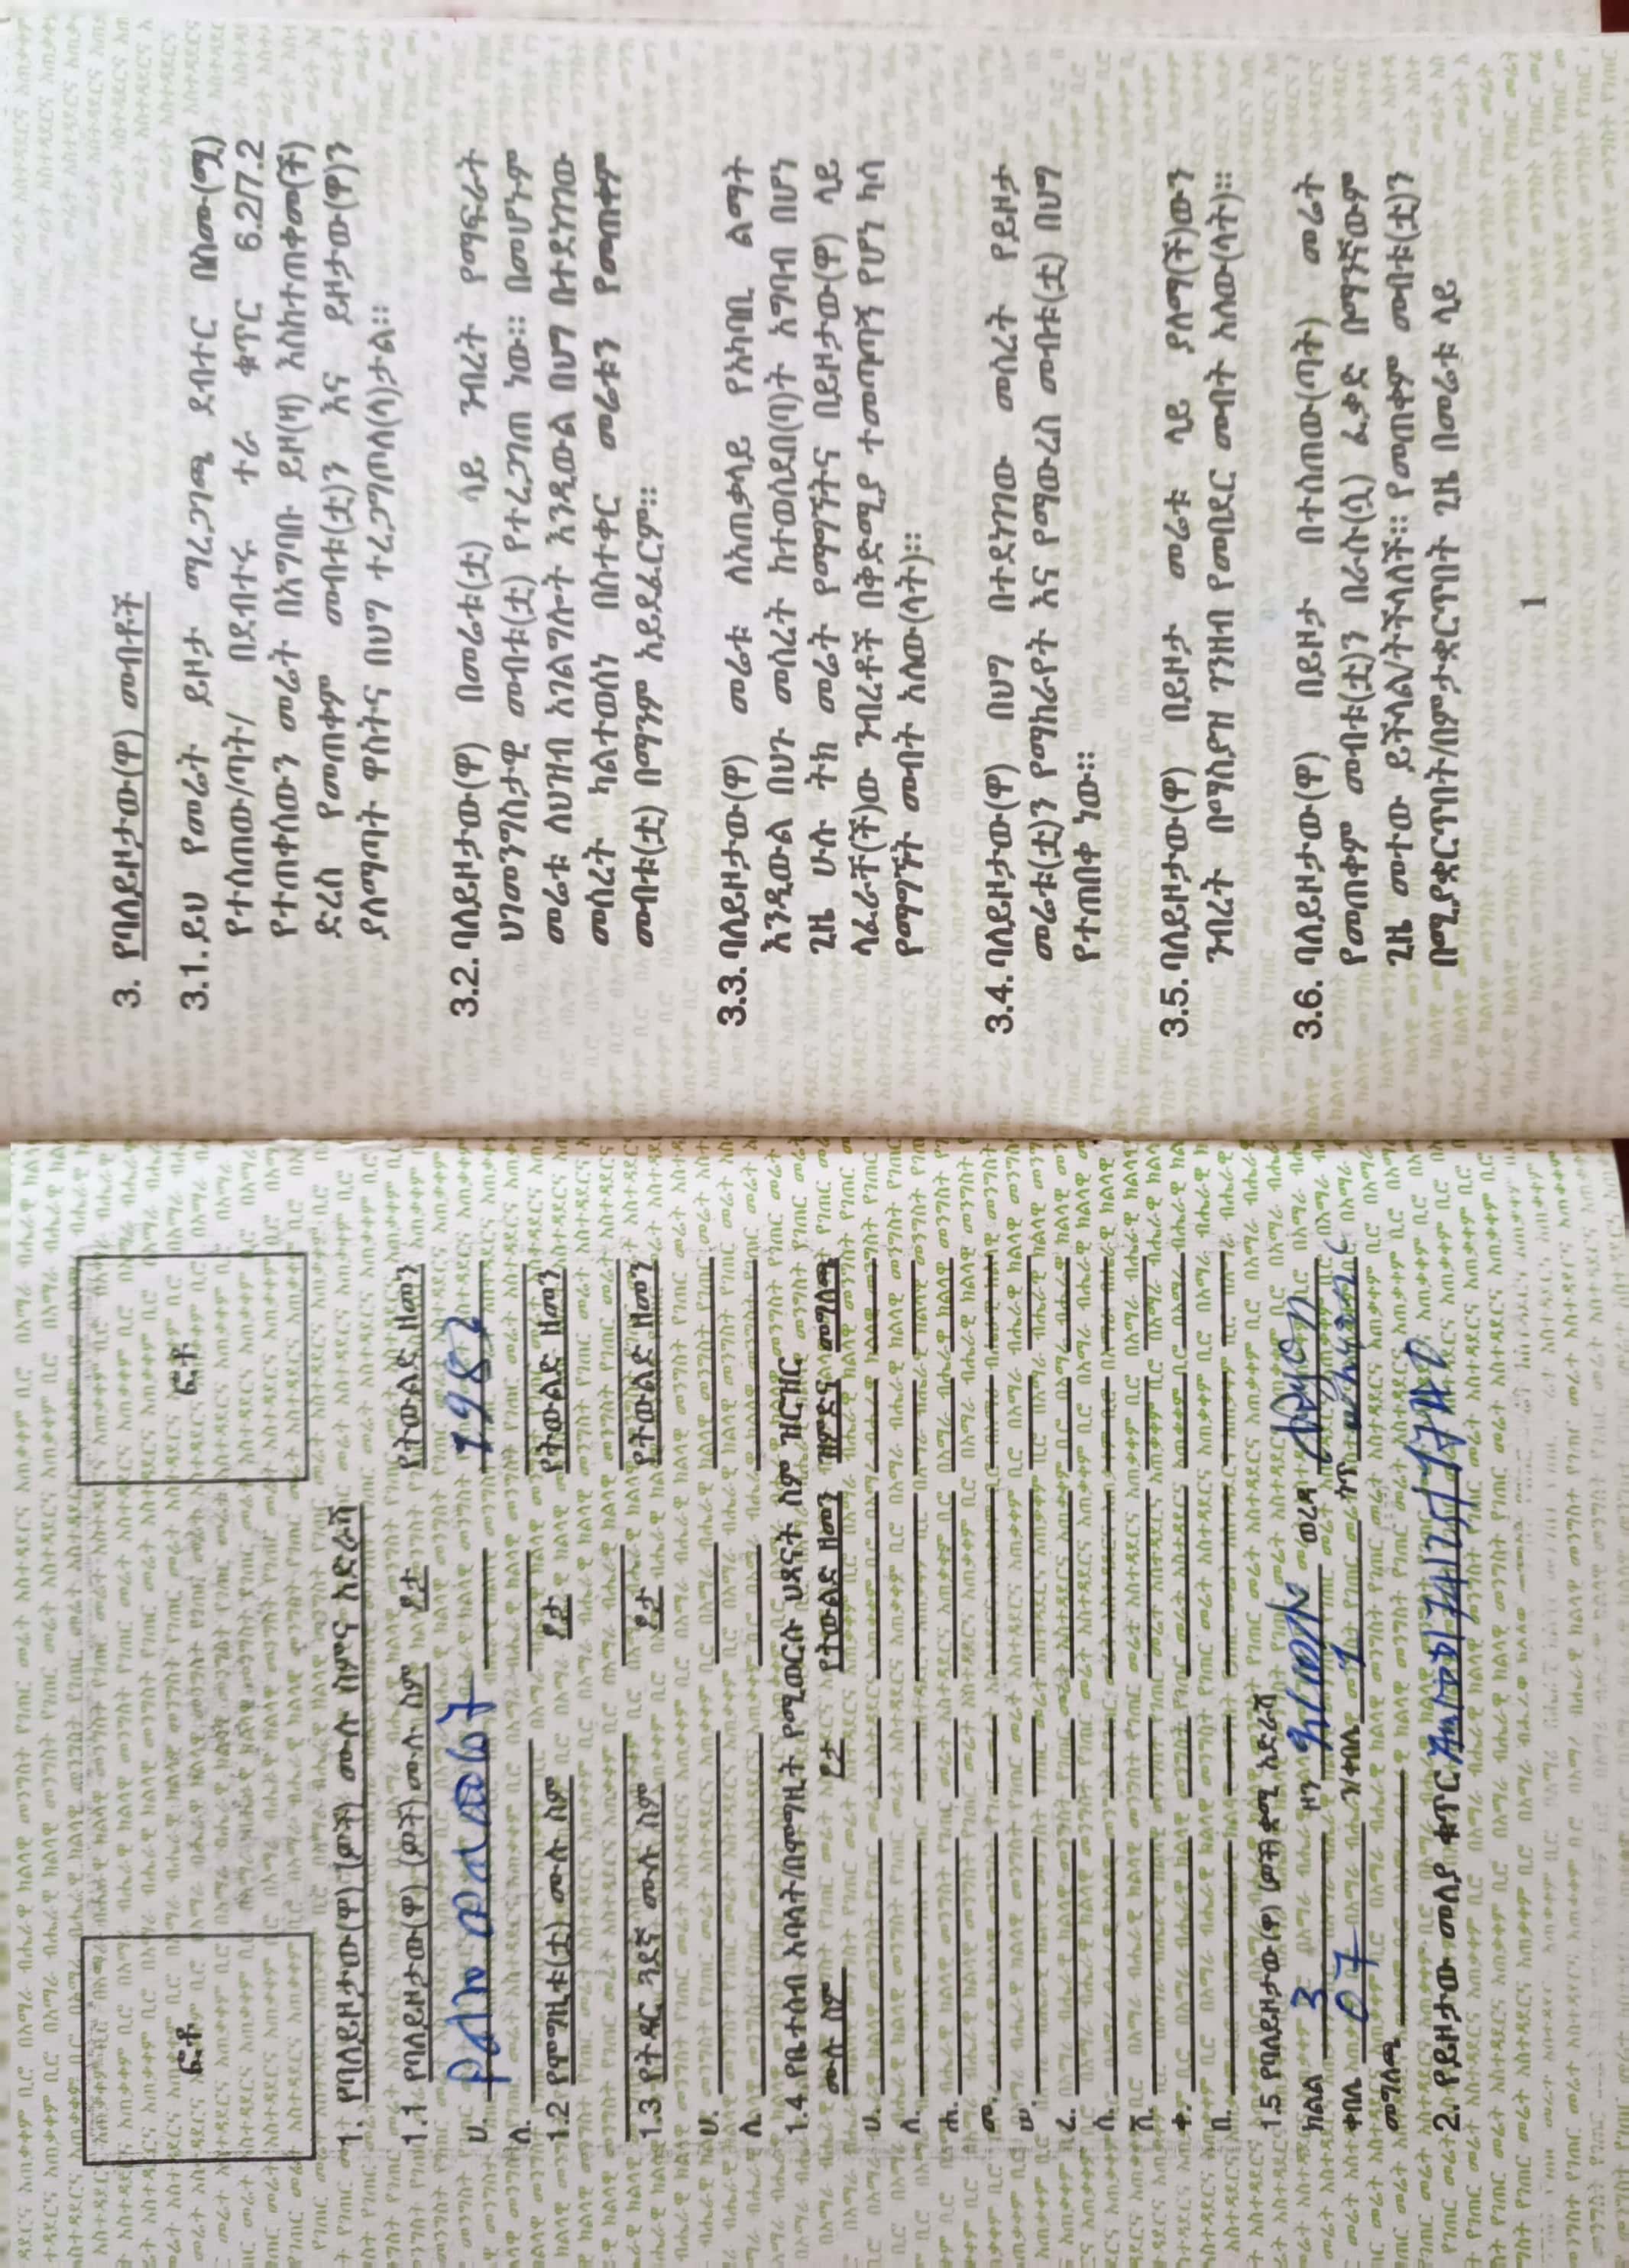 ፎቶ
ፎቶ
1. የባለይዞታው(ዋ) (ዎች) ሙሉ ስምና አድራሻ
1.1 የባለይዞታው(ዋ) (ዎች) ሙሉ ስም ፆታ የትውልድ ዘመን
ሀ. 1982
ለ.
1.2 የሞግዚቱ(ቷ) ሙሉ ስም ፆታ የትውልድ ዘመን
1.3 የትዳር ጓደኛ ሙሉ ስም ፆታ የትውልድ ዘመን
ሀ.
ለ.
1.4 የቤተሰብ አባላት/በሞግዚት የሚወርሱ ህጻናት ስም ዝርዝር
ሙሉ ስም ፆታ የትውልድ ዘመን ዝምድና መግለጫ
ሀ.
ለ.
ሐ.
መ.
ሠ.
ረ.
ሰ.
ሸ.
ቀ.
በ.
1.5 የባለይዞታው(ዋ) (ዎች) ቋሚ አድራሻ
ክልል 3 ዞን ወረዳ
ቀበሌ 07 ን/ቀበሌ 1 ጎጥ
መግለጫ
2. የይዞታው መለያ ቁጥር
3. የባለይዞታው(ዋ) መብቶች
3.1. ይህ የመሬት ይዞታ ማረጋገጫ ደብተር በስሙ(ሟ)
የተሰጠው/ጣት/ በደብተሩ ተራ ቁጥር 6.2/7.2
የተጠቀሰውን መሬት በአግባቡ ይዞ(ዛ) እስከተጠቀመ(ች)
ድረስ የመጠቀም መብቱ(ቷ)ን እና ይዞታው(ዋ)ን
ያለማጣት ዋስትና በህግ ተረጋግጦለ(ላ)ታል።
3.2. ባለይዞታው(ዋ) በመሬቱ(ቷ) ላይ ንብረት የማፍራት
ህገመንግስታዊ መብቱ(ቷ) የተረጋገጠ ነው። በመሆኑም
መሬቱ ለህዝብ አገልግሎት እንዲውል በህግ በተደነገገው
መሰረት ካልተወሰነ በስተቀር መሬቱን የመጠቀም
መብቱ(ቷ) በማንም አይደፈርም።
3.3. ባለይዞታው(ዋ) መሬቱ ለአጠቃላይ የአካባቢ ልማት
እንዲውል በህጉ መሰረት ከተወሰደበ(ባ)ት እግባብ በሆነ
ጊዜ ሁሉ ትክ መሬት የማግኘትና በይዞታው(ዋ) ላይ
ላፈራቸ(ች)ው ንብረቶች በቅድሚያ ተመጣጣኝ የሆነ ካሳ
የማግኘት መብት አለው(ላት)።
3.4. ባለይዞታው(ዋ) በህግ በተደነገገው መሰረት የይዞታ
መሬቱ(ቷ)ን የማከራየት እና የማውረስ መብቱ(ቷ) በህግ
የተጠበቀ ነው።
3.5. ባለይዞታው(ዋ) በይዞታ መሬቱ ላይ ያለማ(ች)ውን
ንብረት በማስያዝ ገንዘብ የመበደር መብት አለው(ላት)።
3.6. ባለይዞታው(ዋ) በይዞታ በተሰጠው(ጣት) መሬት
የመጠቀም መብቱ(ቷ)ን በራሱ(ሷ) ፈቃድ በማንኛውም
ጊዜ መተው ይችላል/ትችላለች። የመጠቀም መብቱ(ቷ)ን
በሚያቋርጥበት/በምታቋርጥበት ጊዜ በመሬቱ ላይ
1